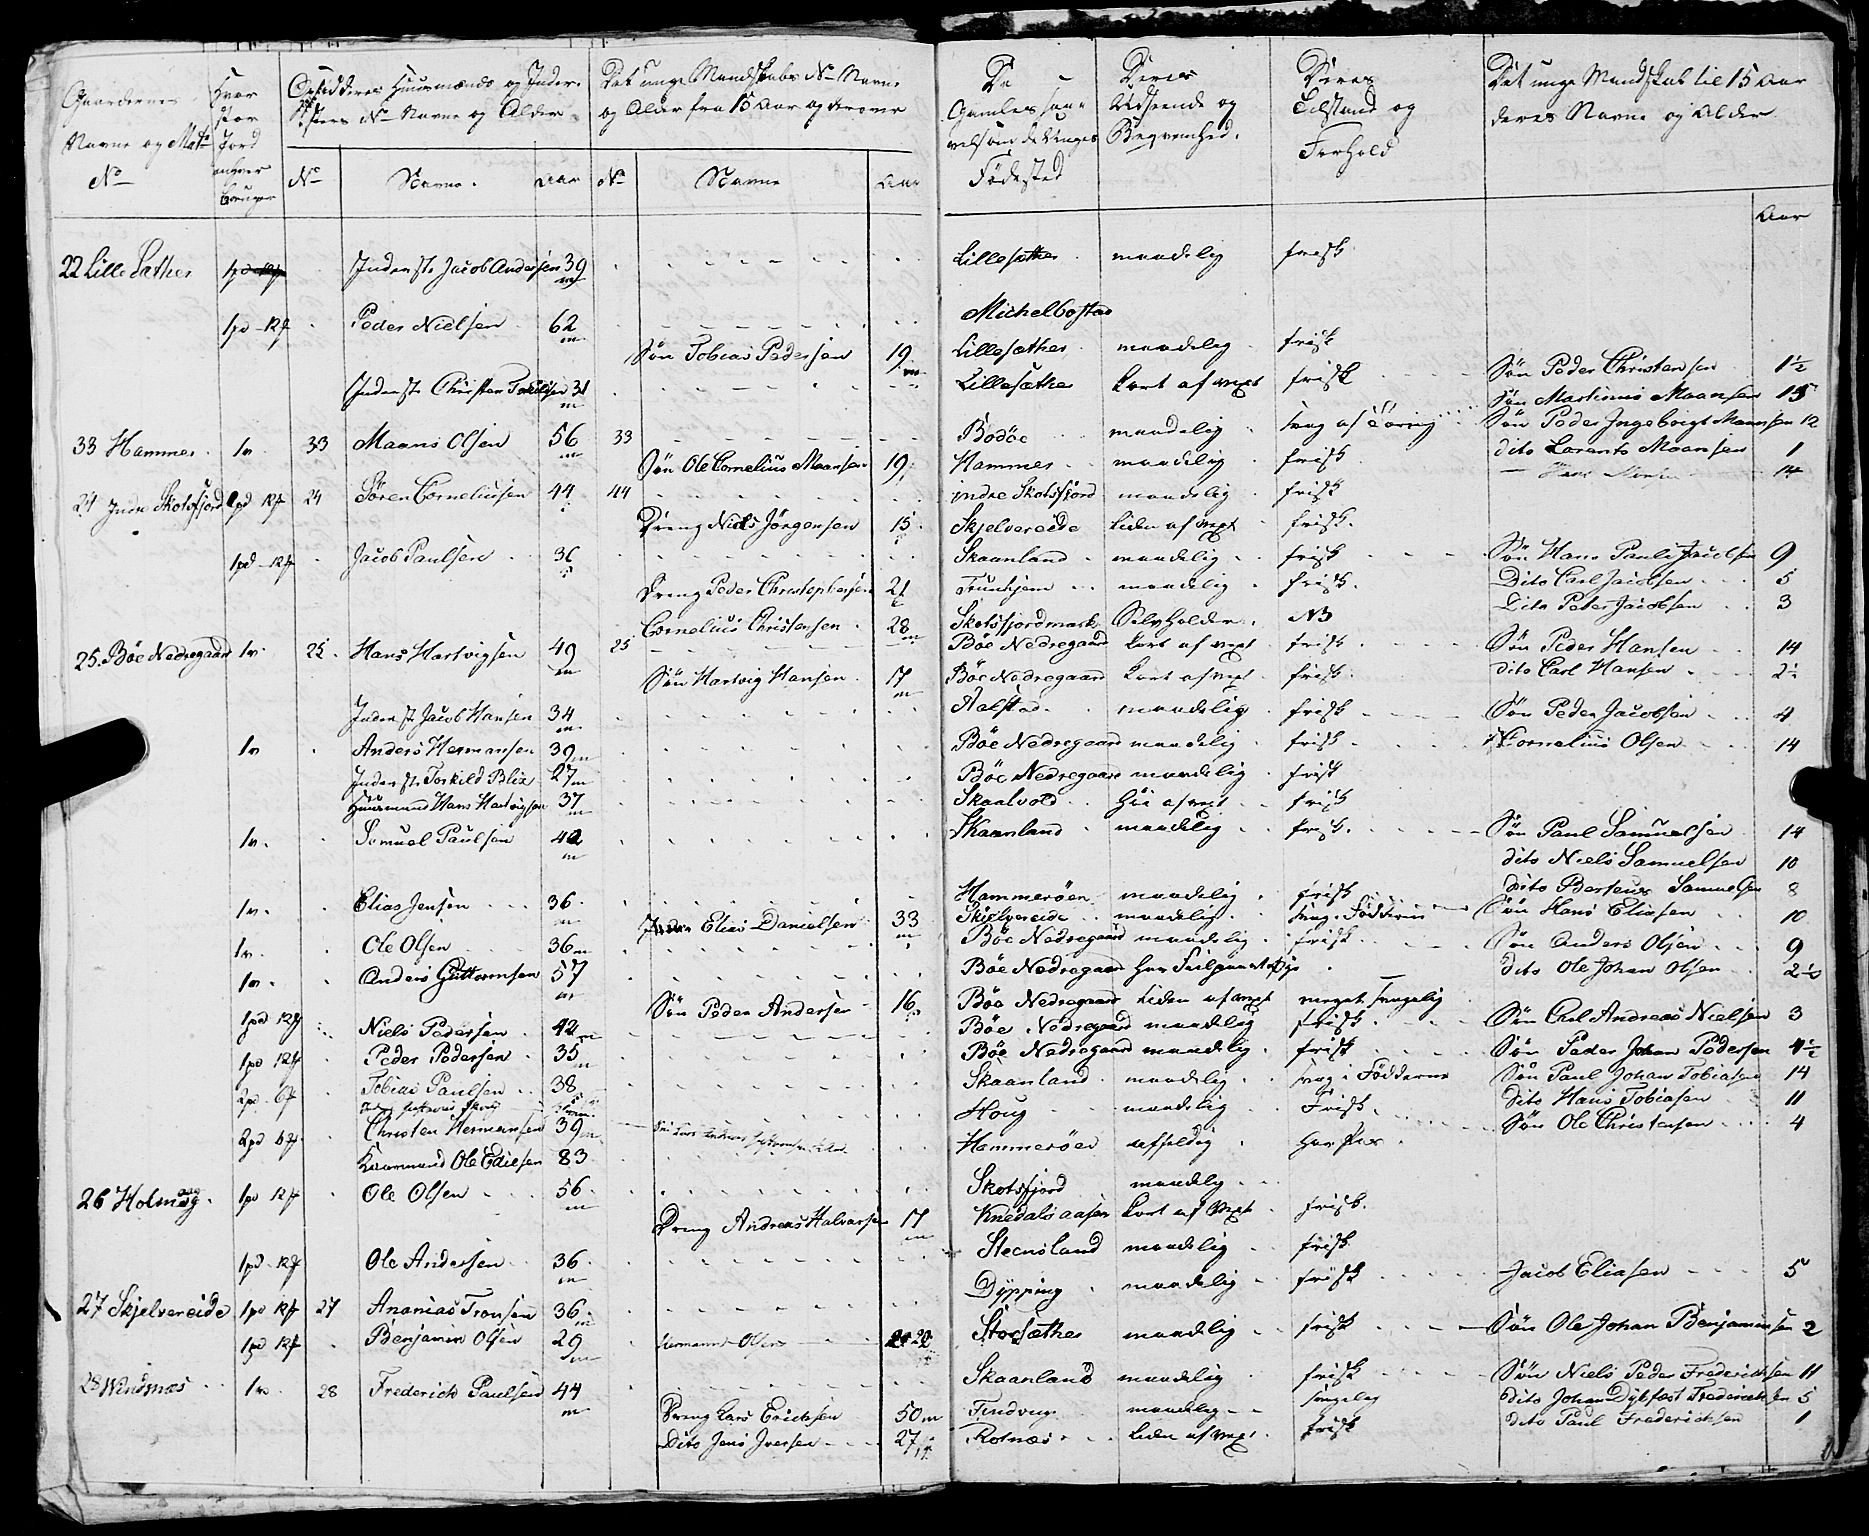 Gaardernes Navne og Mat. No
Hvor stor Jord enhver bruger
Opsiddere Huusmænds og Inder- No Navne og Alder
Det unge Mandskabs No Navne og Alder fra 15 Aar og derover
De Gamles saavelsom de Unges Fødested
Deres Udseende og Beqvemhed.
Deres Tilstand og Forhold
Det unge Mandskab til 15 Aar deres Navne og Alder
No Navne. Aar No Navne Aar
Aar
22 Lille Sæther Inderst Jacob Andersen 39 m Lillesæther maadelig frisk
1pd 12 Peder Nielsen 62 m Michelbostad
Søn Tobias Pedersen 19 m Lillesæther maadelig frisk
Inderst Christen 31 m Lillesæther kort af vext frisk Søn Peder Christensen 1½
Søn Martinus Maansen 15
33 Hammer 1v 33 Maans Olsen 56 m 33 Bodøe maadelig svag af Søn Peder Ingebrigt Maansen 12
Søn Ole Cornelius Maansen 19 Hammer maadelig frisk dito Lorents Maansen 1
24 Indre Skotsfjord 1pd 12 24 Søren Corneliusen 44 44 indre Skotsfjord maadelig frisk Hans 14
Dreng Niels Jørgensen 15 Skjelvereide liden af vext frisk.
1pd 12 Jacob Paulsen 36 Skaanland maadelig frisk Søn Hans Paul Jacobsen 9
Dreng Peder Christophersen 21 Trunhjem maadelig frisk Dito Carl Jacobsen 5
Cornelius Christensen 28 m Skotsfjordmark Selvholder NB Dito Peter Jacobsen 3
25. Bøe Nedregaard 1v. 25. Hans Hartvigsen 49 m 25 Bøe Nedregaard kort af vext frisk Søn Peder Hansen 14
Søn Hartvig Hansen 17 m Bøe Nedregaard kort af vext frisk dito Carl Hansen 2½
Inderst Jacob Hansen 34 m Aalstad maadelig frisk Søn Peder Jacobsen 4
1v Anders Hermansen 39 m Bøe Nedregaard maadelig frisk Cornelius Olsen 14
Inderst Torkild Blix 27 m Bøe Nedregaard maadelig frisk
Huusmand Hans Hartvigsen 37 m Skaalvold høi af vext frisk
1v. Samuel Paulsen 42 m Skaanland maadelig frisk. Søn Paul Samuelsen 14
dito Niels Samuelsen 10
dito Berteus Samuelsen 8
1v. Elias Jensen 36 m Hammerøen maadelig frisk Søn Hans Eliasen 10
Elias Danielsen 33 m Skjelvereide maadelig svag i Fødderne
1v. Ole Olsen 36 m Bøe Nedregaard maadelig frisk Søn Anders Olsen 9
1v. Anders Guttormsen 57 m Bøe Nedregaard dito Ole Johan Olsen 2½
Søn Peder Andersen 16 Bøe Nedregaard liden af vext meget svagelig
1pd 12 Niels Pedersen 42 m Bøe Nedregaard maadelig frisk Søn Carl Andreas Nielsen 3
1pd 12 Peder Pedersen 35 m Bøe Nedregaard maadelig frisk Søn Peder Johan Pedersen 4½
2pd 6 Tobias Paulsen 38 Skaanland maadelig svag i Fødderne Søn Paul Johan Tobiasen 14
dito Hans Tobiasen 11
2pd 6 Christen Hermansen 39 m Houg maadelig Frisk. Søn Ole Christensen 4
Kaarmand Ole Edisen 83 Hammerøen affældig
26 Holmvaag 1pd 12 Ole Olsen 56 m Skotsfjord maadelig
Dreng Andreas Halvorsen 17 m Knedalsaasen kort af vext frisk.
1pd 12 Ole Andersen 36 m Steensland maadelig frisk
27 Skjelvereide 1pd 12 27 Ananias Tronsen 36 m Dypping maadelig frisk Jacob Eliasen 5
1pd 12 Benjamin Olsen 29 m Hermann Olsen 20 Storsæther maadelig frisk Søn Ole Johan Benjaminsen 2
28 Windnæs 1v. 28 Frederich Paulsen 44 m Skaanland maadelig frisk Søn Niels Peder Frederichsen 11
Dreng Lars Erichsen 50 m Tindvug maadelig svagelig dito Johan Dykfest Frederichsen 5
Dito Jens Iversen 27 Rotnæs liden af vext frisk dito Paul Frederichsen 1